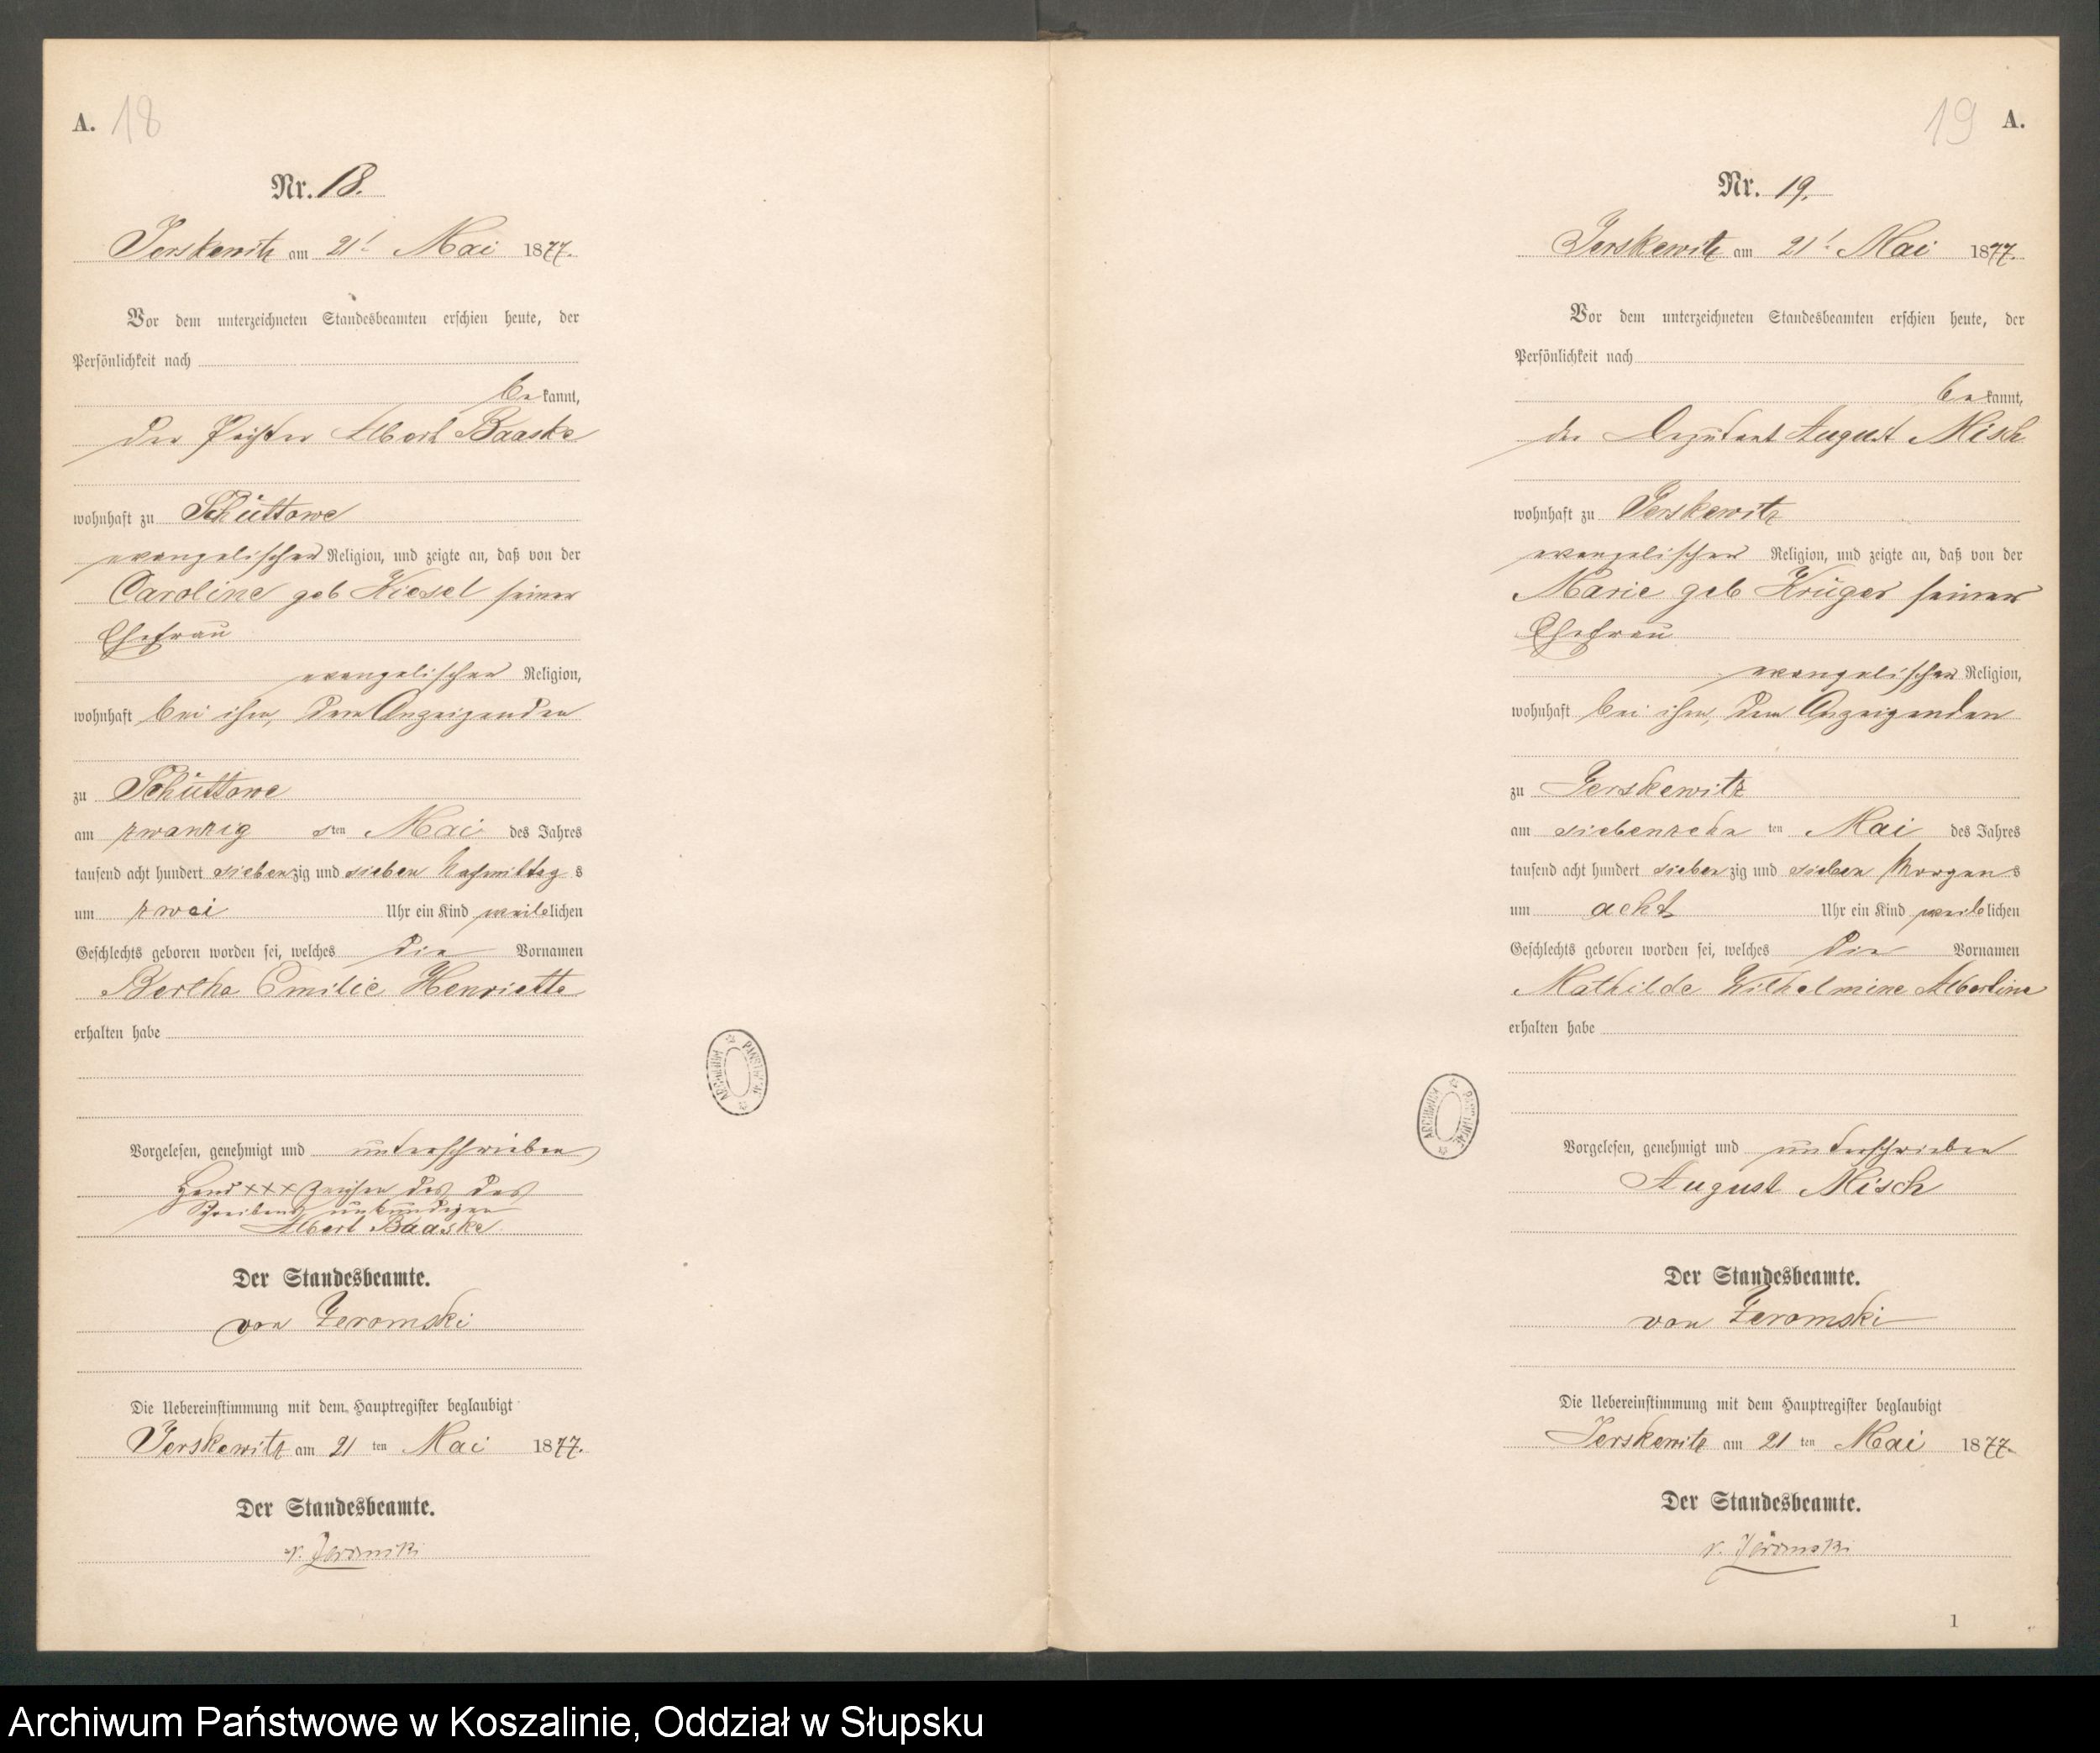 A. 18
Nr. 18.
Jerskewitz am 21t. Mai 1877.
Vor dem unterzeichneten Standesbeamten erschien heute, der
Persönlichkeit nach
be kannt,
der Pächter Albert Baaske
wohnhaft zu Schüttowe
evangelischer Religion, und zeigte an, daß von der
Caroline geb Kiesel seiner
Ehefrau
evangelischer Religion,
wohnhaft bei ihm, dem Anzeigenden
zu Schüttowe
am zwanzig sten Mai des Jahres
tausend acht hundert siebenzig und sieben Nachmittag s
um zwei Uhr ein Kind weiblichen
Geschlechts geboren worden sei, welches die Vornamen
Bertha Emilie Henriette
erhalten habe
Vorgelesen, genehmigt und unterschrieben
Hand xxx Zeichen des des
Schreibens unkundigen
Albert Baaske
Der Standesbeamte.
von Zeromski
Die Uebereinstimmung mit dem Hauptregister beglaubigt
Jerskewitz am 21 ten Mai 1877.
Der Standesbeamte.
v. Zeromski
ARCHIWUM PAŃSTWOWE
19 A.
Nr. 19.
Jerskewitz am 21t. Mai 1877.
Vor dem unterzeichneten Standesbeamten erschien heute, der
Persönlichkeit nach
be kannt,
der Deputant August Misch
wohnhaft zu Jerskewitz
evangelischer Religion, und zeigte an, daß von der
Marie geb Krüger seiner
Ehefrau
evangelischer Religion,
wohnhaft bei ihm, dem Anzeigenden
zu Jerskewitz
am siebenzehn ten Mai des Jahres
tausend acht hundert siebenzig und sieben Morgens
um acht Uhr ein Kind weiblichen
Geschlechts geboren worden sei, welches die Vornamen
Mathilde Wilhelmine Albertine
erhalten habe
Vorgelesen, genehmigt und unterschrieben
August Misch
Der Standesbeamte.
von Zeromski
Die Uebereinstimmung mit dem Hauptregister beglaubigt
Jerskewitz am 21 ten Mai 1877.
Der Standesbeamte.
v. Zeromski
1
ARCHIWUM PAŃSTWOWE
Archiwum Państwowe w Koszalinie, Oddział w Słupsku